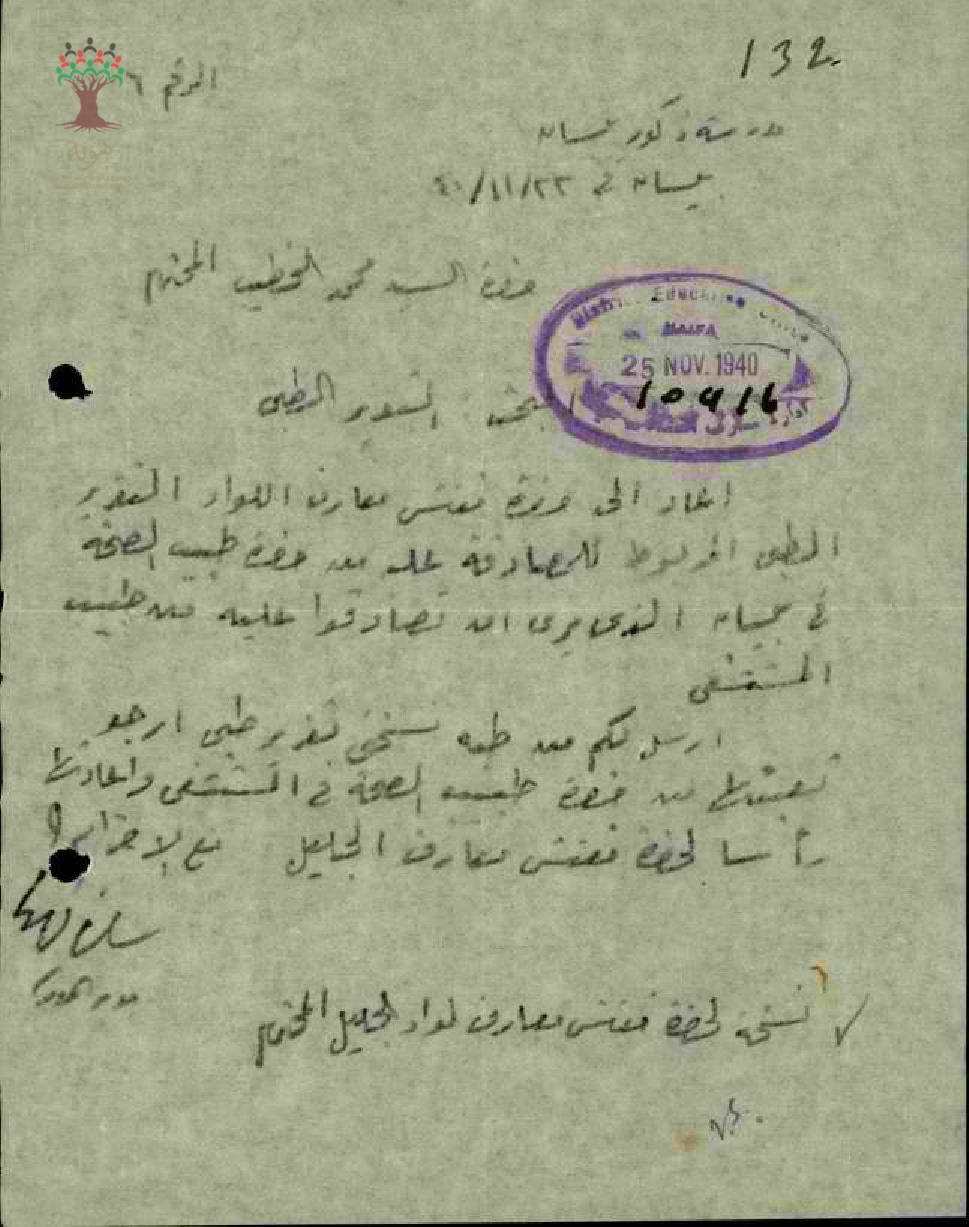 132
الرقم ٦
مدرسة ذكور بيسان
بيسان في ٢٢/١١/٤٠
حضرة السيد محمد الخطيب المحترم
District Education Office
HAIFA
25 NOV. 1940
10916
التقرير الطبي
اعاد الي حضرة مفتش معارف اللواء التقرير
الطبي المربوط للمصادقة عليه من حضرة طبيب الصحة
في بيسان الذي يرى ان تصادقوا عليه من طبيب
المستشفى
ارسل لكم من طيه نسختي تقرير طبي ارجو
تعبئتها من حضرة طبيب الصحة في المستشفى واعادتها
رأسا لحضرة مفتش معارف الجليل مع الاحترام
مدير المدرسة
نسخة لحضرة مفتش معارف لواء الجليل المحترم